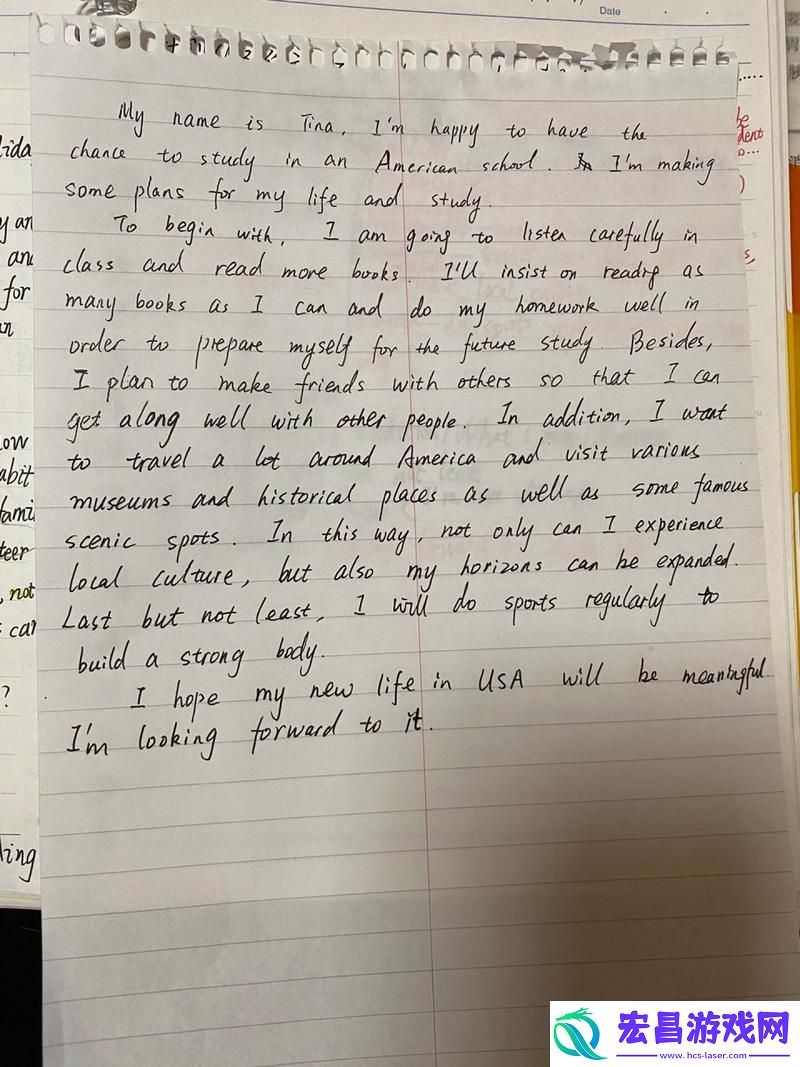 Date
My name is Tina. I'm happy to have the
chance to study in an American school. I'm making
some plans for my life and study.
To begin with, I am going to listen carefully in
class and read more books. I'll insist on readig as
many books as I can and do my homework well in
order to prepare myself for the future study. Besides,
I plan to make friends with others so that I can
get along well with other people. In addition, I want
to travel a lot around America and visit various
museums and historical places as well as some famous
scenic spots. In this way, not only can I experience
local culture, but also my horizons can be expanded.
Last but not least, I will do sports regularly to
build a strong body.
I hope my new life in USA will be meaningful.
I'm looking forward to it.
宏昌游戏网
www.hcs-laser.com